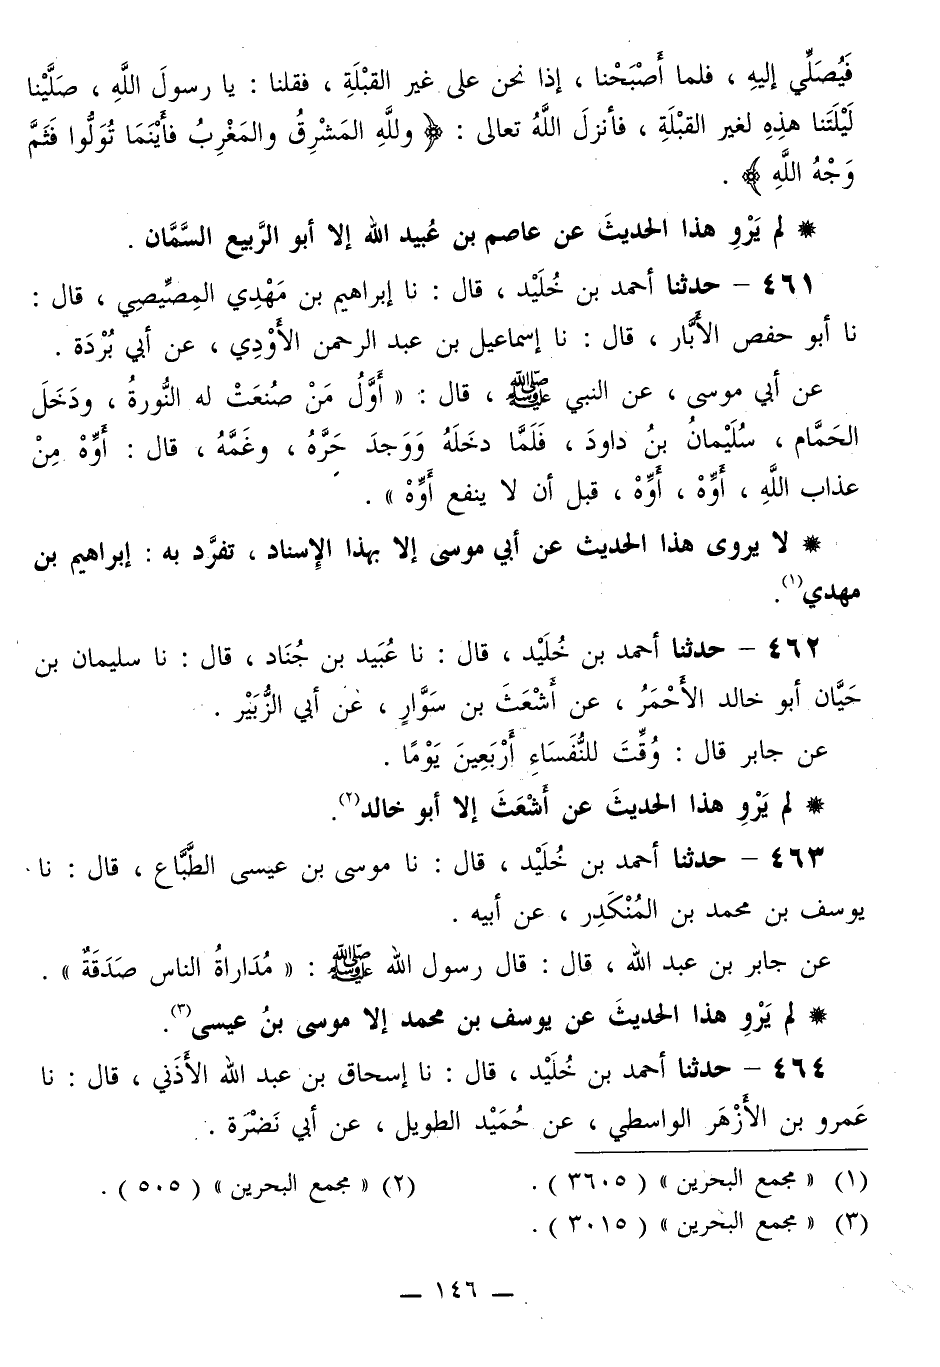 فَيُصَلِّي إليهِ ، فلما أَصْبَحْنا ، إذا نحن على غير القبْلَةِ ، فقلنا : يا رسولَ اللَّهِ ، صَلَّيْنا
لَيْلَتَنا هذِهِ لغير القبْلَةِ ، فأنزلَ اللَّهُ تعالى : ﴿ وللهِ المَشْرِقُ والمَغْرِبُ فأَيْنَمَا تُوَلُّوا فَثَمَّ
وَجْهُ اللَّهِ ﴾ .
* لم يَرْوِ هذا الحديثَ عن عاصم بن عُبيد الله إلا أبو الرَّبيع السَّمَّان .
٤٦١ – حدثنا أحمد بن خُلَيْد ، قال : نا إبراهيم بن مَهْدِي المِصِّيصِي ، قال :
نا أبو حفص الأَبَّار ، قال : نا إسماعيل بن عبد الرحمن الأَوْدِي ، عن أبي بُرْدَة .
عن أبي موسى ، عن النبي ﷺ ، قال : « أَوَّلُ مَنْ صُنعَتْ له النُّورةُ ، ودَخَلَ
الحَمَّام ، سُلَيْمانُ بنُ داودَ ، فَلَمَّا دخَلَهُ وَوَجدَ حَرَّهُ ، وغَمَّهُ ، قال : أَوِّهْ مِنْ
عذاب اللَّهِ ، أَوِّهْ ، أَوِّهْ ، قبل أن لا ينفع أَوِّهْ » .
* لا يروى هذا الحديث عن أبي موسى إلا بهذا الإسناد ، تفرَّد به : إبراهيم بن
مهدي(١).
٤٦٢ – حدثنا أحمد بن خُلَيْد ، قال : نا عُبَيد بن جُنَاد ، قال : نا سليمان بن
حَيَّان أبو خالد الأَحْمَرُ ، عن أَشْعَثَ بن سَوَّارٍ ، عن أبي الزُّبَيْر .
عن جابر قال : وُقِّتَ للنُّفَسَاءِ أَرْبَعِينَ يَوْمًا .
* لم يَرْوِ هذا الحديثَ عن أَشْعَثَ إلا أبو خالد(٢).
٤٦٣ – حدثنا أحمد بن خُلَيْد ، قال : نا موسى بن عيسى الطَّبَّاع ، قال : نا
يوسف بن محمد بن المُنْكَدِر ، عن أبيه .
عن جابر بن عبد الله ، قال : قال رسول الله ﷺ : « مُدَاراةُ الناس صَدَقَةٌ » .
* لم يَرْوِ هذا الحديثَ عن يوسف بن محمد إلا موسى بنُ عيسى(٣).
٤٦٤ – حدثنا أحمد بن خُلَيْد ، قال : نا إسحاق بن عبد الله الأَذَني ، قال : نا
عَمرو بن الأَزْهَر الواسطي ، عن حُمَيْد الطويل ، عن أبي نَضْرَة .
(١) « مجمع البحرين » ( ٣٦٠٥ ) . (٢) « مجمع البحرين » ( ٥٠٥ ) .
(٣) « مجمع البحرين » ( ٣٠١٥ ) .
— ١٤٦ —